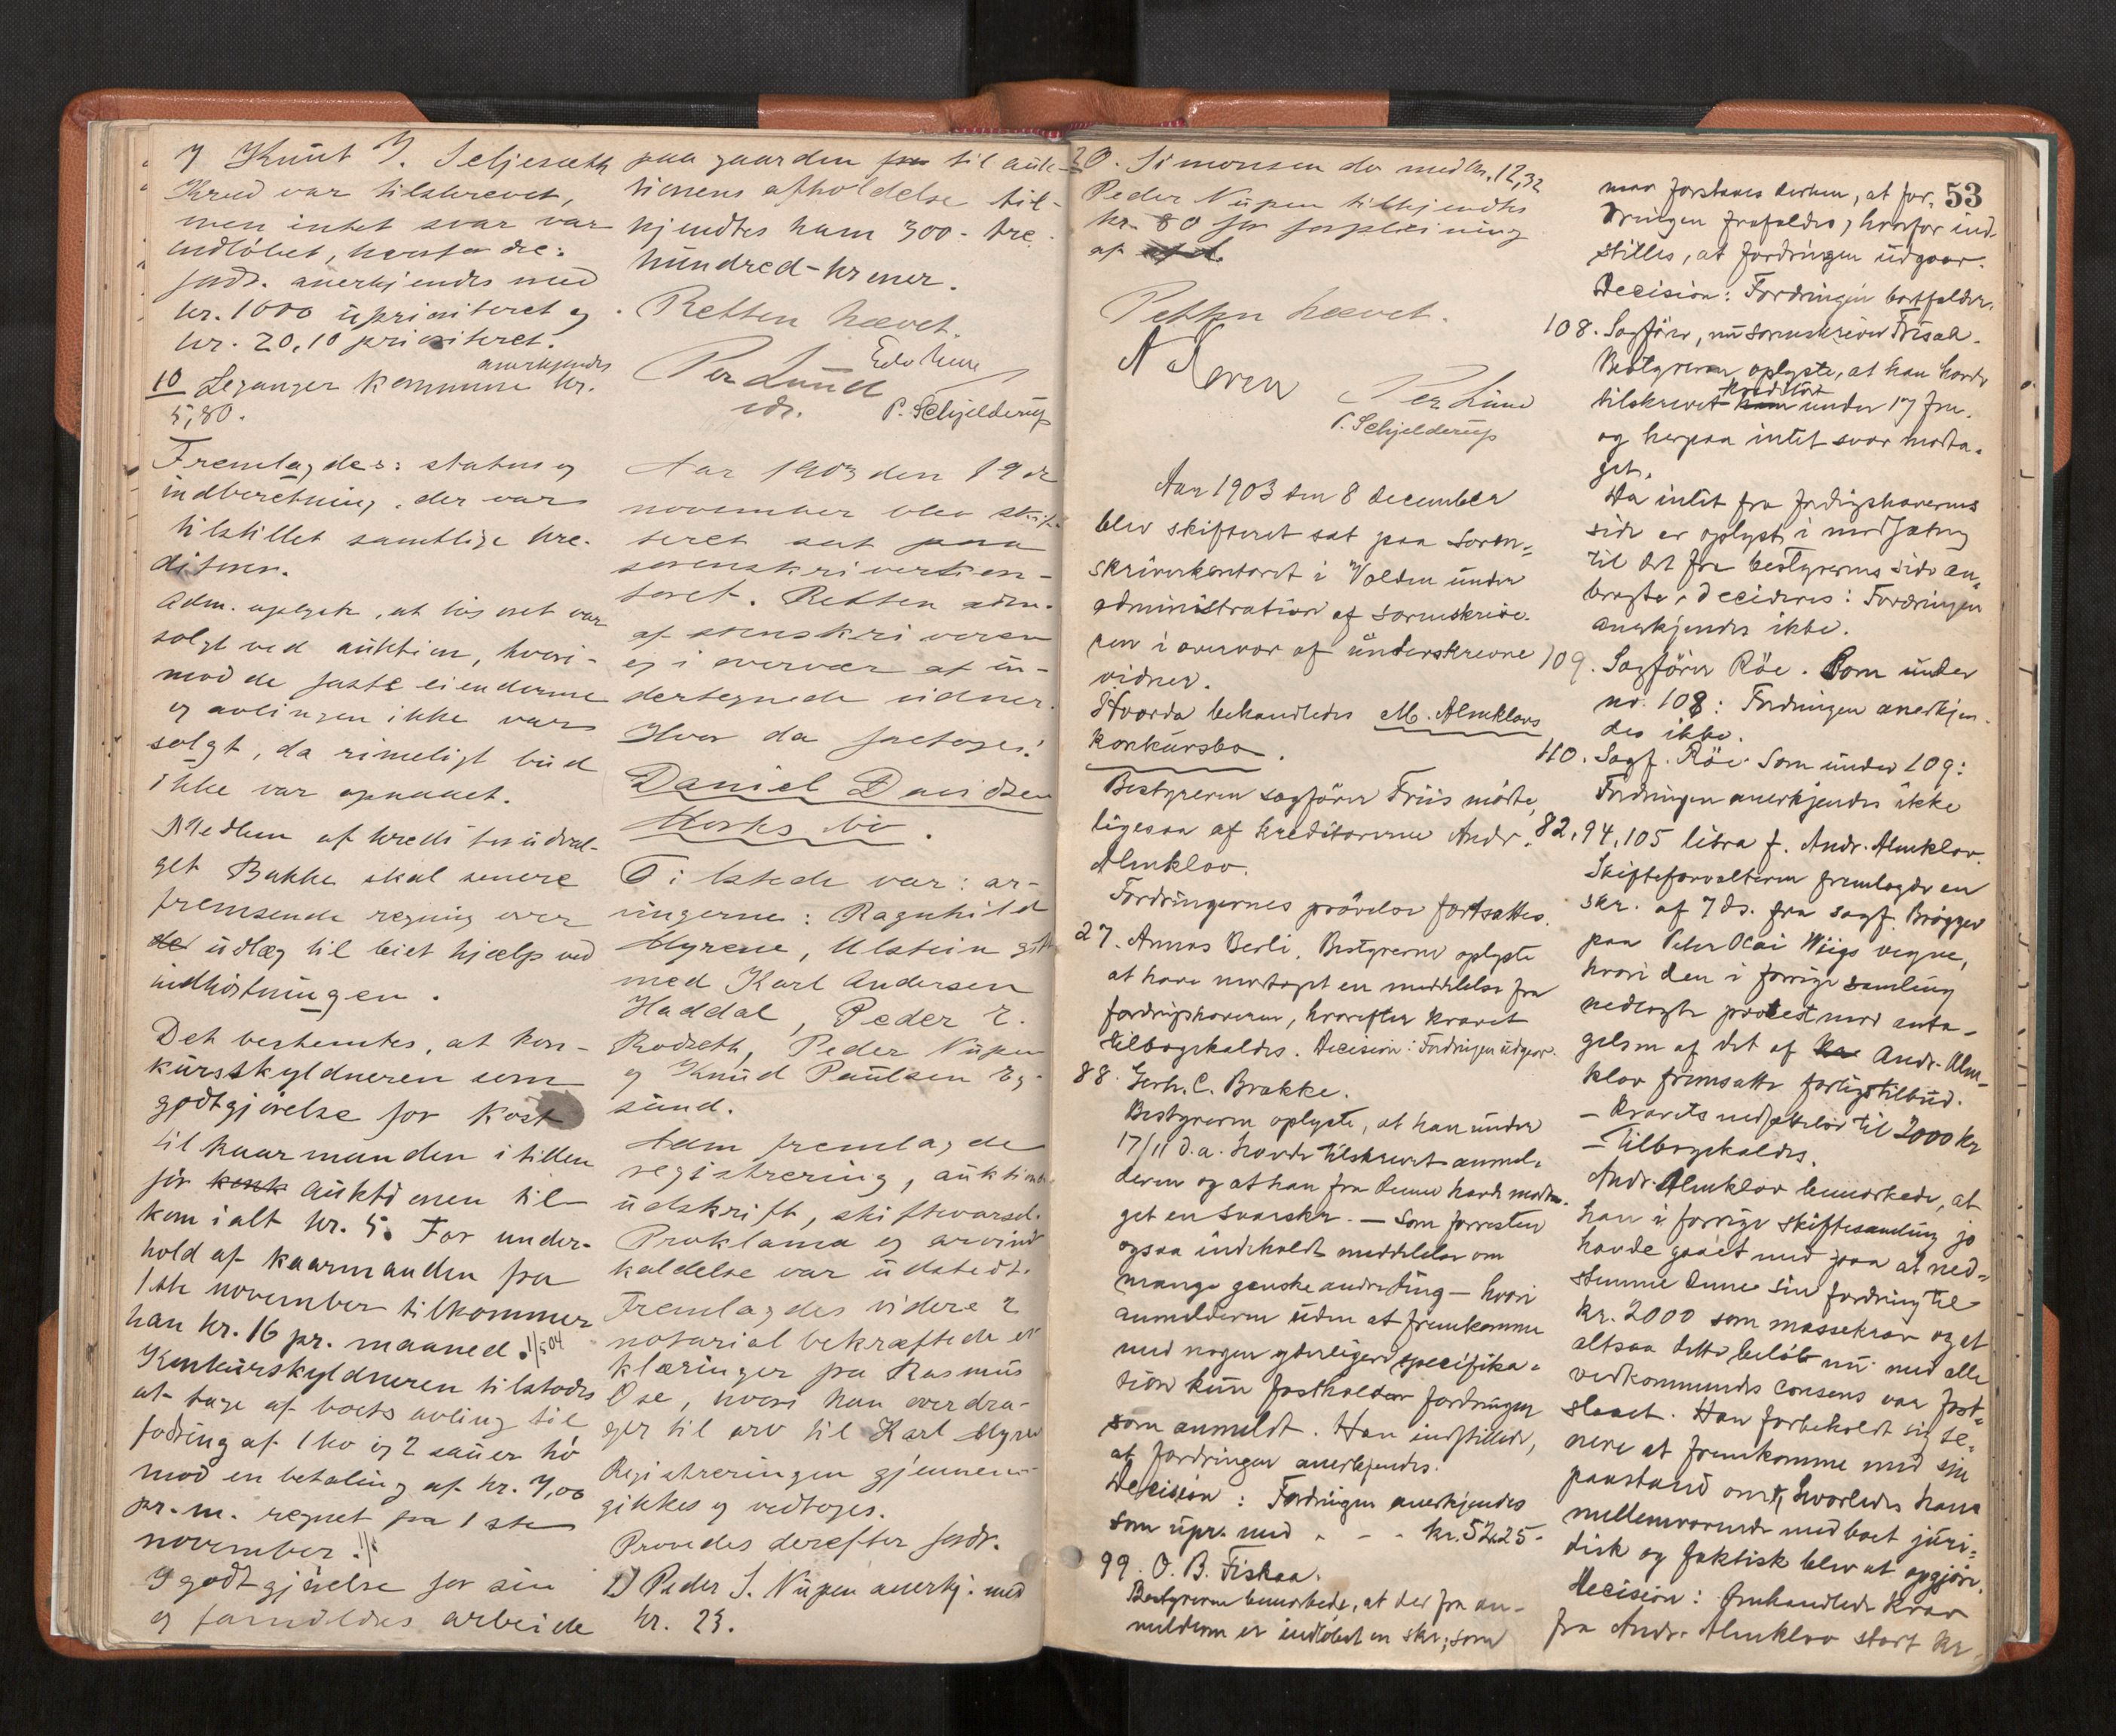 7 Knut J. Seljesæth
Krud var tilskrevet,
men intet svar var
indløbet, hvorfor de:
fodr. anerkjendes med
kr. 1000 uprioriteret og
kr. 20,10 prioriteret.
anerkjendes
10 Leganger kommune kr.
5,80.
Fremlagdes: status og
indberetning, der var
tilstillet samtlige kre-
ditorer.
Adm. oplyste, at løsøret var
solgt ved auktion, hvori-
mod de faste eiendomme
og avlingen ikke var
solgt, da rimeligt bud
ikke var opnaaet.
Medlem af kreditorudval-
get Bakke skal senere
fremsende regning over
de udlæg til leiet hjælp ved
indhøstningen.
Det bestemtes, at kon-
kursskyldneren som
godtgjørelse for kost
til kaarmanden i tiden
før kosk auktionen til-
kom ialt kr. 5. For under-
hold af kaarmanden fra
1ste november tilkommer
han kr. 16 pr. maaned. 1/5 04
Konkurskyldneren tilstodes
at tage af boets avling til
fodring af 1 ko og 2 sauer hø
mod en betaling af kr. 7,00
pr. m. regnet fra 1ste
november.
I godtgjørelse for sin
og famildies arbeide
paa gaarden fra til auk-
tionens afholdelse til-
kjendtes ham 300 - tre
hundred - kroner.
Retten hævet.
Per Lund
P. Schjelderup
Aar 1903 den 19de
november blev skif-
teret sat paa
sorenskriverkon-
toret. Retten adm.
af sorenskriveren
og i overvær af un-
dertegnede vidner.
Hvor da foretoges:
Daniel Davidsen
Morks bo.
Tilstede var: ar-
vingerne: Ragnhild
Myrene, Ulstein gift
med Karl Andersen
Haddal, Peder E.
Rodseth, Peder Nupen
og Knud Paulsen Eg-
sund.
Adm fremlagde
registrering, auktions
udskrift, skiftevarsel.
Proklama og arvind
kaldelse var udstedt.
Fremlagdes videre 2
notarial bekræftede er
klæringer fra Rasmus
Ose, hvori han overdra-
ger til arv til Karl Myrene
Registreringen gjennem-
gikkes og vedtoges.
Prøvedes derefter fodr.
1) Peder S. Nupen anerkj. med
kr. 23.
2 O. Simonsen do med kr. 12,32
Peder Nupen tilkjendtes
kr. 80 for forpleining
af
Retten hævet.
Per Lund
P. Schjelderup
Aar 1903 den 8 december
blev skifteret sat paa soren-
skriverkontoret i Volden under
administration af sorenskrive-
ren i overvær af underskrevne
vidner.
Hvorda behandledes M. Almklovs
konkursbo.
Bestyreren sagfører Friis mødte,
ligesaa af kreditorerne Andr.
Almklov.
Fordringernes prøvelse fortsattes.
27. Annas Berli. Bestyreren oplyste
at have modtaget en meddelelse fra
fordringshaveren, hvorefter kravet
tilbagekaldes. Decision: Fordringen udgaar.
88. Gerh. C. Brakke.
Bestyreren oplyste, at han under
17/11 d.a. havde tilskrevet anmel-
deren og at han fra denne havde modta-
get en svarskr. — som forresten
ogsaa indeholdt meddelelse om
mange ganske andre ting — hvori
anmelderen uden at fremkomme
med nogen yderligere specifika-
tion kun fastholder fordringen
som anmeldt. Han indstillede,
at fordringen anerkjendes.
Decision: Fordringen anerkjendes
som upr. med - - - kr. 52.25.
99. O. B. Fiskaa.
Bestyreren bemærkede, at der fra an-
melderen er indløbet en skr., som
53
maa forstaaes derhen, at for-
dringen frafaldes, hvorfor ind-
stilles, at fordringen udgaar.
Decision: Fordringen bortfalder.
108. Sagfører, nu sorenskriver Frisak.
Bestyreren oplyste, at han havde
kreditor
tilskrevet ham under 17 fm.
og herpaa intet svar modta-
get.
Da intet fra fordringshaverens
side er oplyst i modsætning
til det fra bestyrerens side an-
bragte, decideres: Fordringen
anerkjendes ikke.
109. Sagfører Röe. Som under
no. 108: Fordringen anerkjen-
des ikke.
110. Sagf. Röe. Som under 109:
Fordringen anerkjendes ikke
82, 94, 105 litra f. Andr. Almklov.
Skifteforvalteren fremlagde en
skr. af 7 ds. fra sagf. Brøgger
paa Peter Olai Wiigs vegne,
hvori den i forrige samling
nedlagte protest mod anta-
gelsen af det af Andr. Alm-
klov fremsatte forligstilbud.
— kravets nedsættelse til 2000 kr
— tilbagekaldes.
Andr. Almklov bemærkede, at
han i forrige skiftesamling jo
havde gaaet med paa at ned-
stemme denne sin fordring til
kr. 2000 som massekrav og at
altsaa dette beløb nu med alle
vedkommendes consens var fast-
slaaet. Han forbeholdt sig se-
nere at fremkomme med sin
paastand om, hvorledes hans
mellemværende med boet juri-
disk og faktisk blev at opgjøre.
Decision: Omhandlede krav
fra Andr. Almklov stort kr.